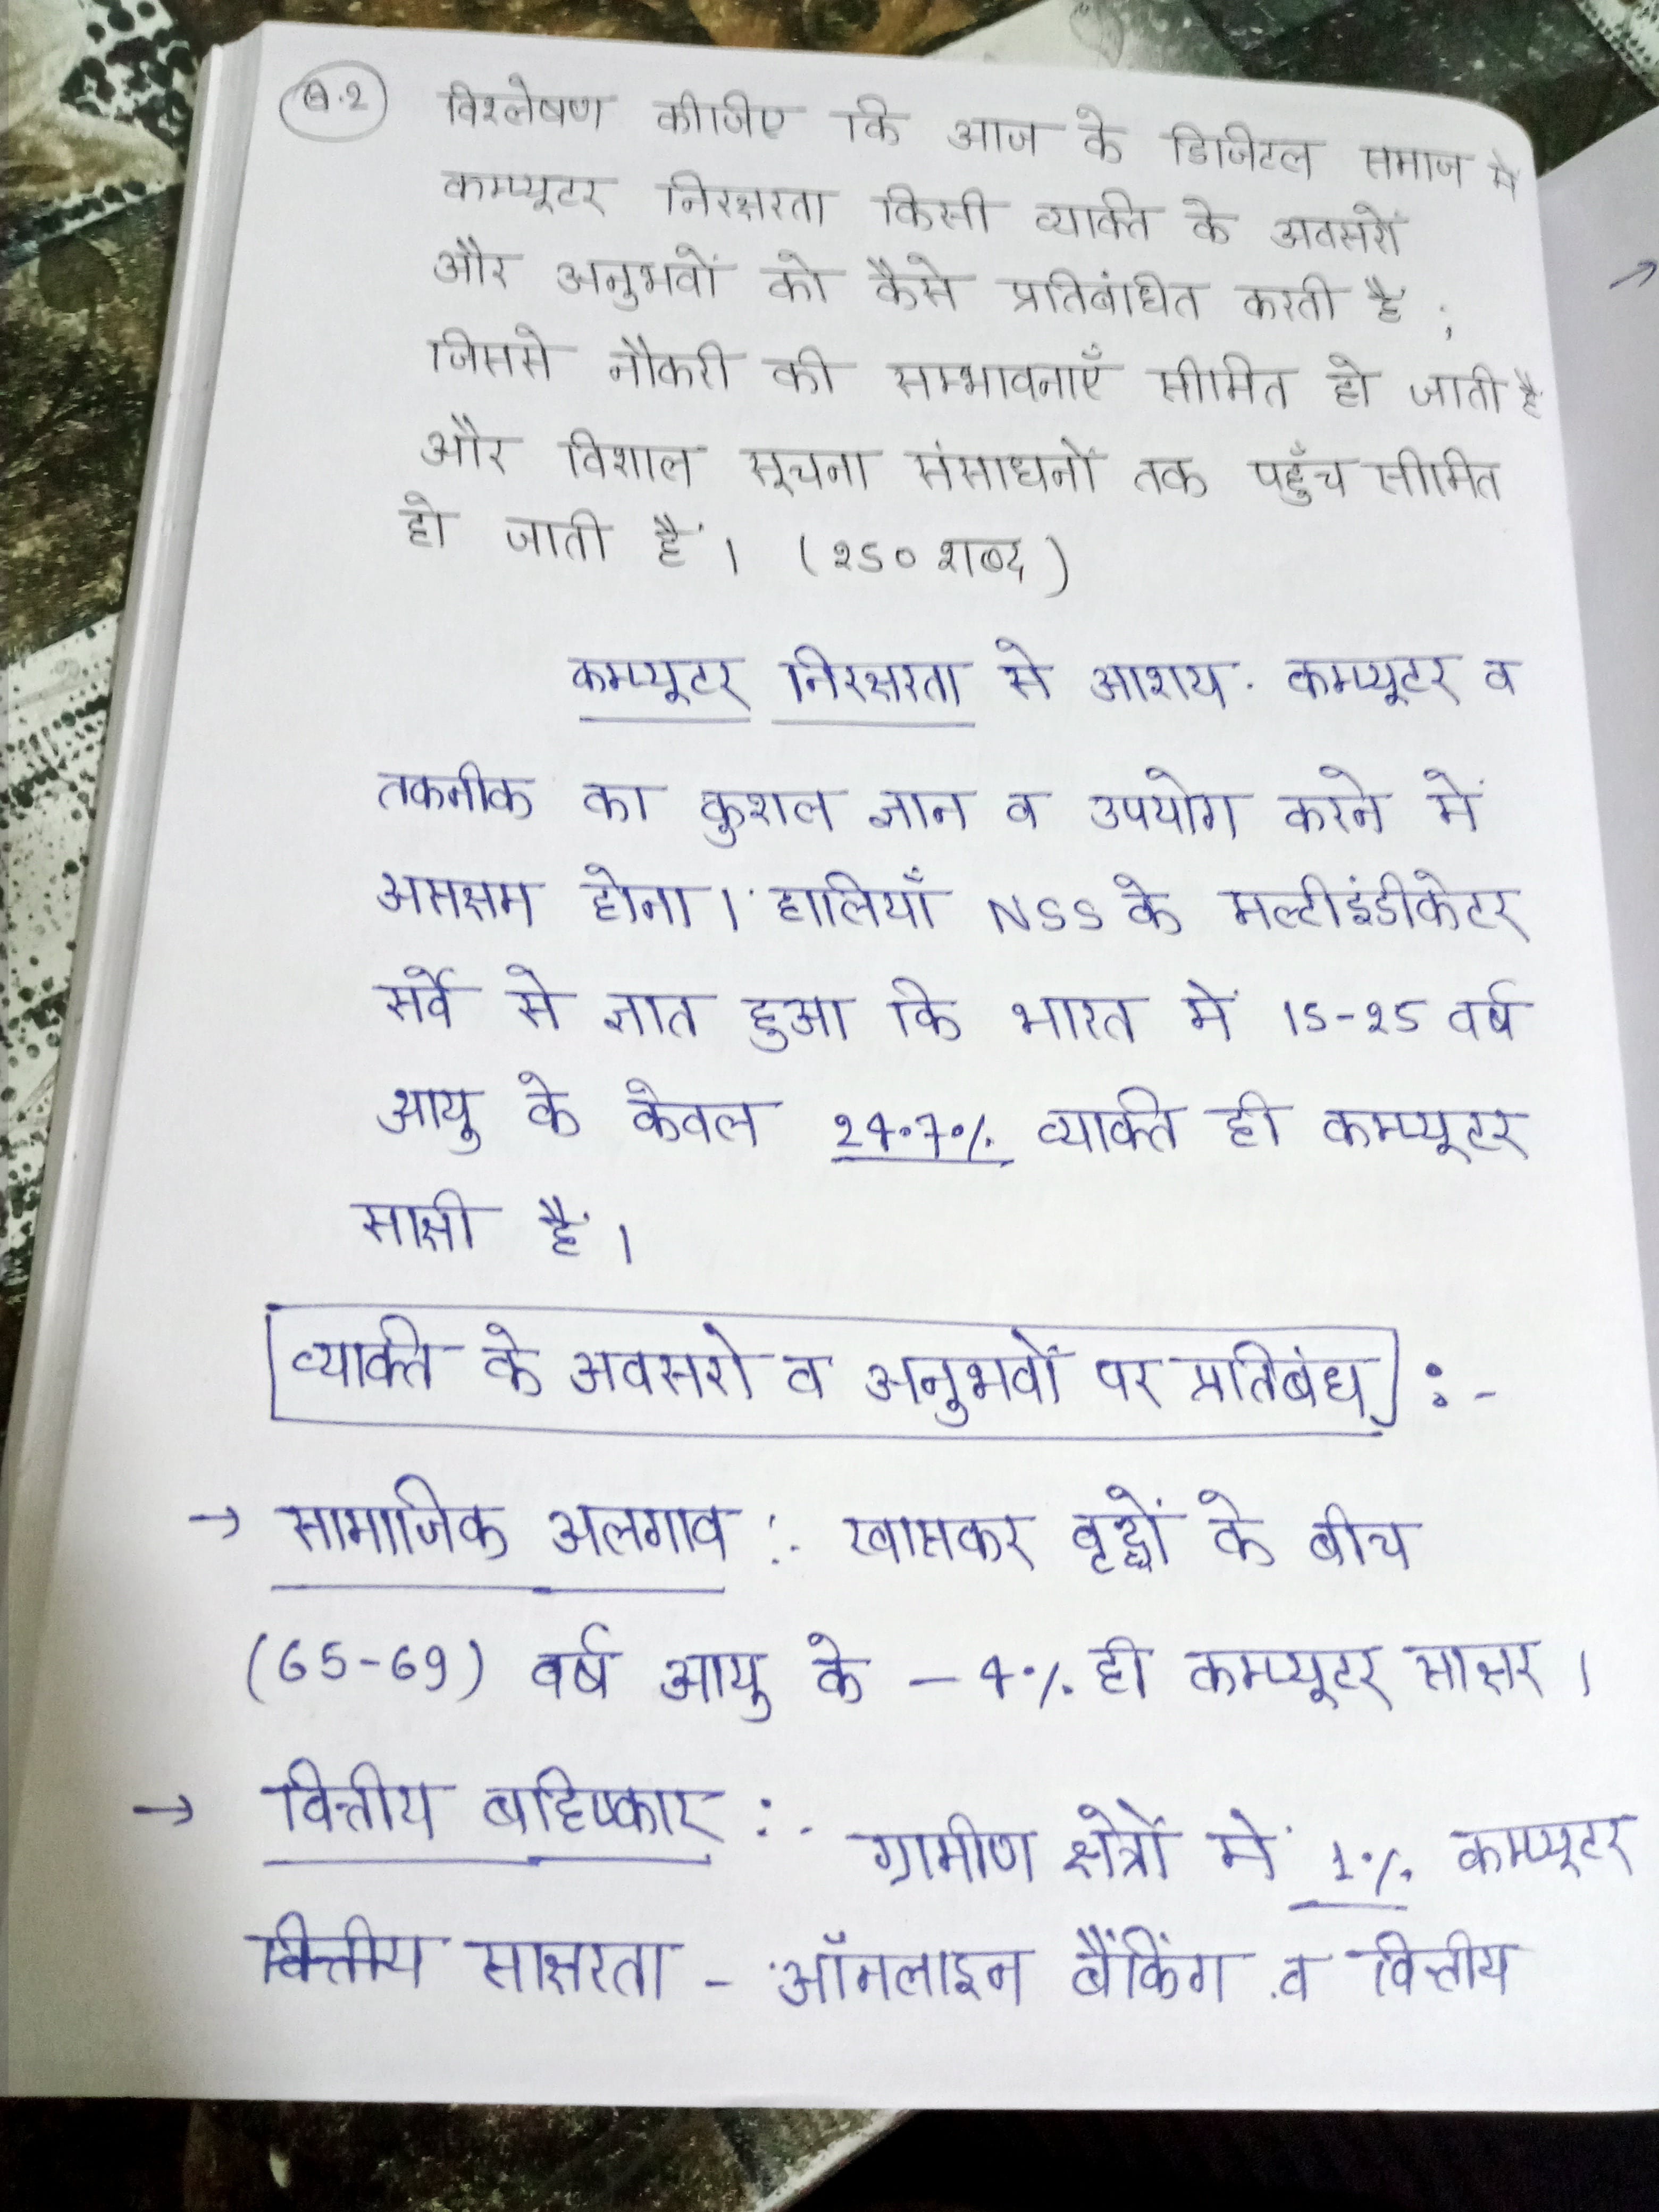 Q.2 विश्लेषण कीजिए कि आज के डिजिटल समाज में
कम्प्यूटर निरक्षरता किसी व्यक्ति के अवसरों
और अनुभवों को कैसे प्रतिबंधित करती है ;
जिससे नौकरी की सम्भावनाएँ सीमित हो जाती है
और विशाल सूचना संसाधनों तक पहुँच सीमित
हो जाती है । (250 शब्द)
कम्प्यूटर निरक्षरता से आशय कम्प्यूटर व
तकनीक का कुशल ज्ञान व उपयोग करने में
असक्षम होना । हालियाँ NSS के मल्टीइंडीकेटर
सर्वे से ज्ञात हुआ कि भारत में 15-25 वर्ष
आयु के केवल 24.7% व्यक्ति ही कम्प्यूटर
साक्षी है ।
व्यक्ति के अवसरो व अनुभवों पर प्रतिबंध :-
→ सामाजिक अलगाव :- खासकर वृद्धों के बीच
(65-69) वर्ष आयु के - 4% ही कम्प्यूटर साक्षर ।
→ वित्तीय बहिष्कार :- ग्रामीण क्षेत्रों में 1% कम्प्यूटर
वित्तीय साक्षरता - ऑनलाइन बैंकिंग व वित्तीय